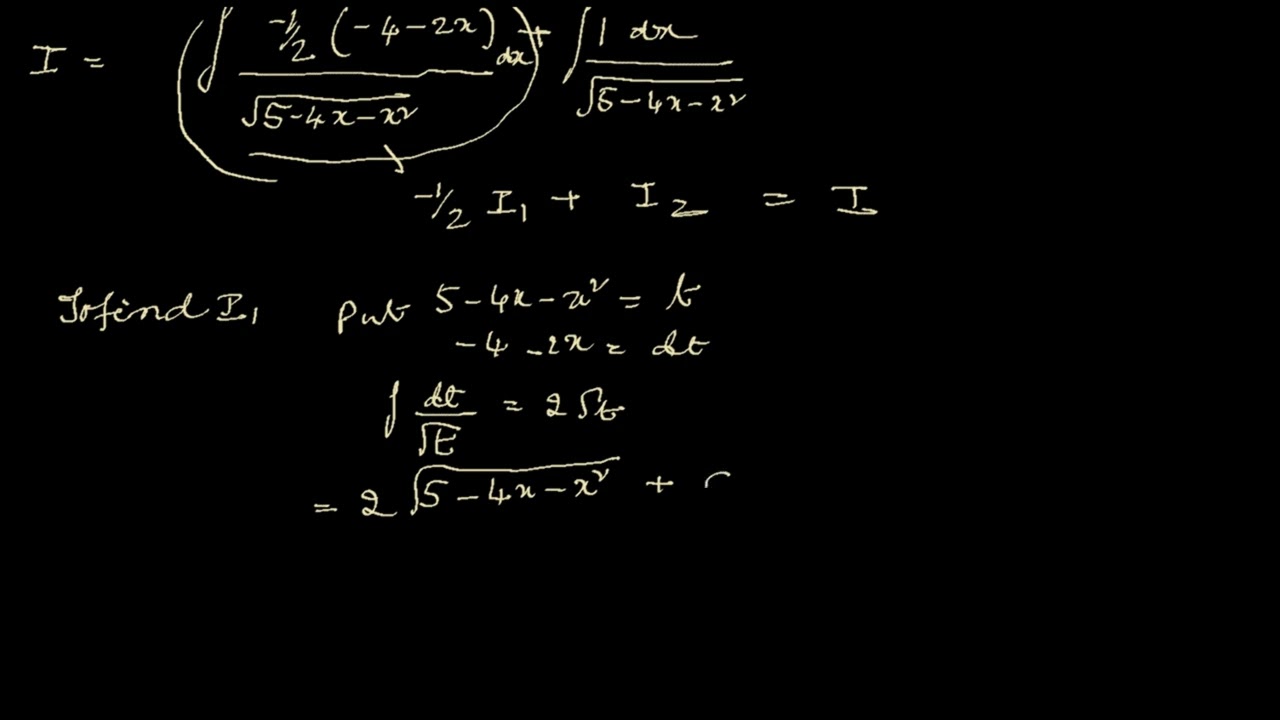 I = ∫ -1/2 (-4-2x) / √5-4x-x² dx + ∫ 1 dx / √5-4x-x²
-1/2 I₁ + I₂ = I
To find I₁ put 5-4x-x² = t
-4 -2x = dt
∫ dt/√t = 2√t
= 2 √5-4x-x² +